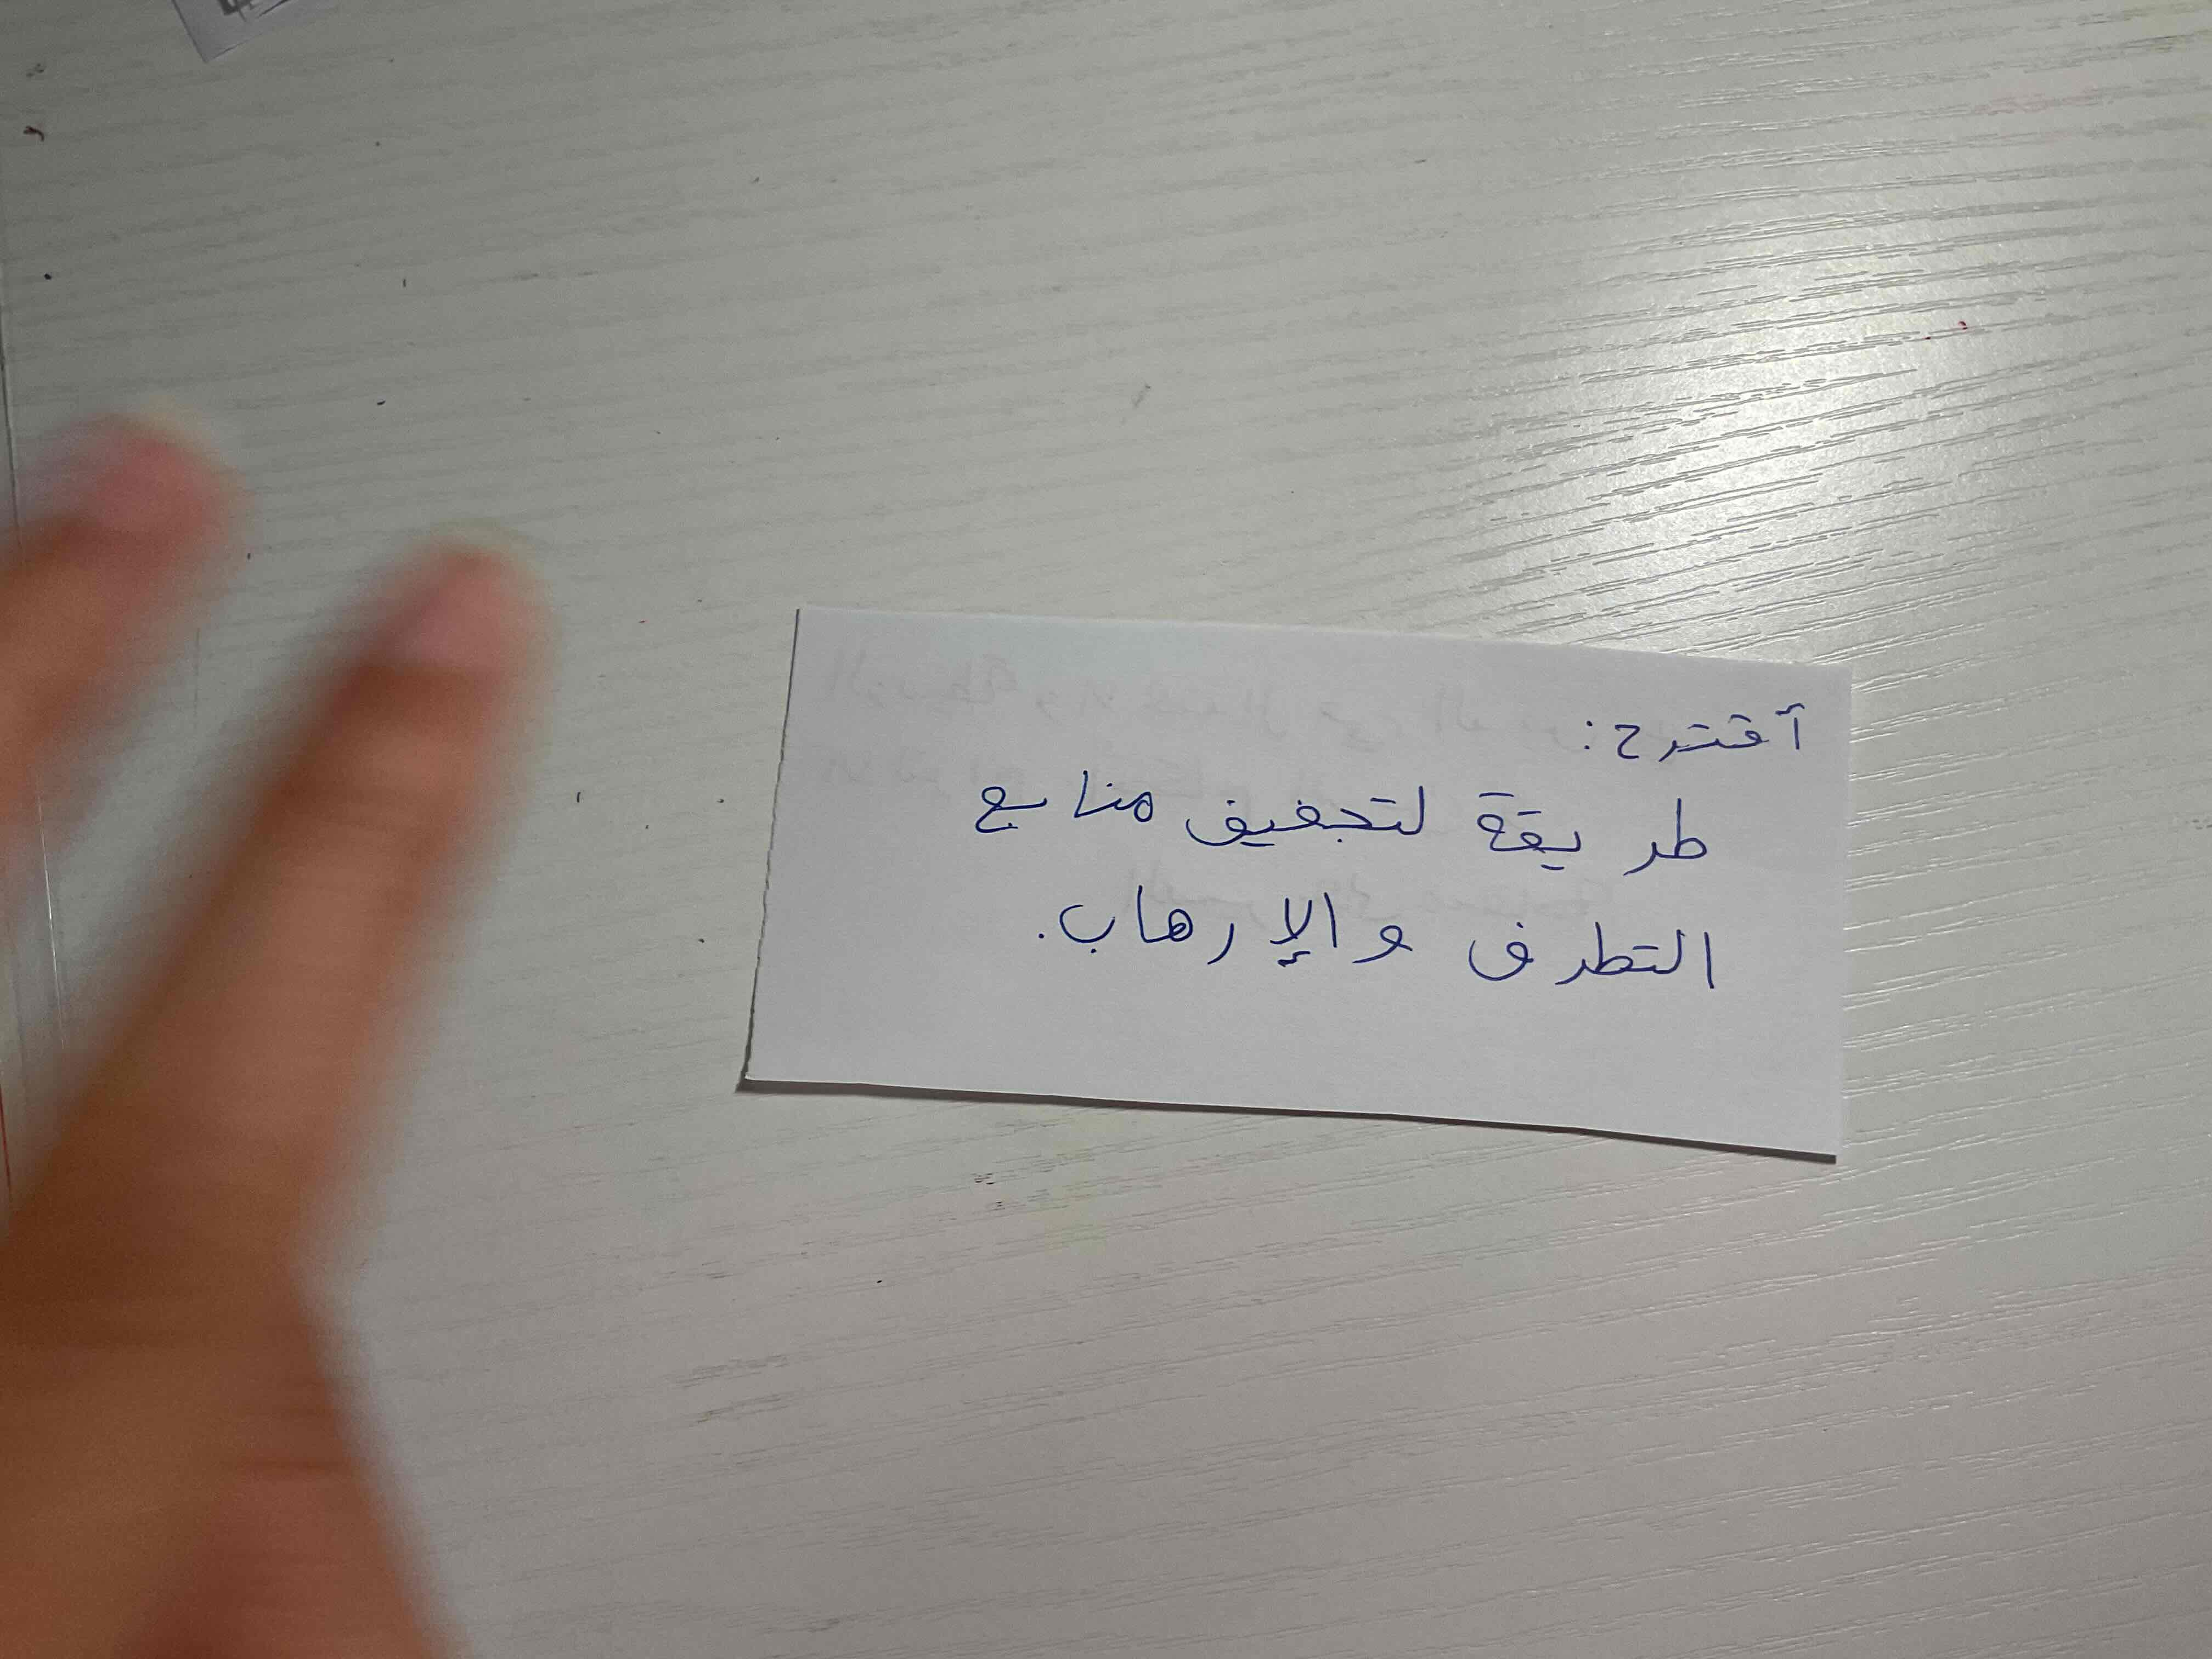 أقترح:
طريقة لتجفيف منابع
التطرف والإرهاب.